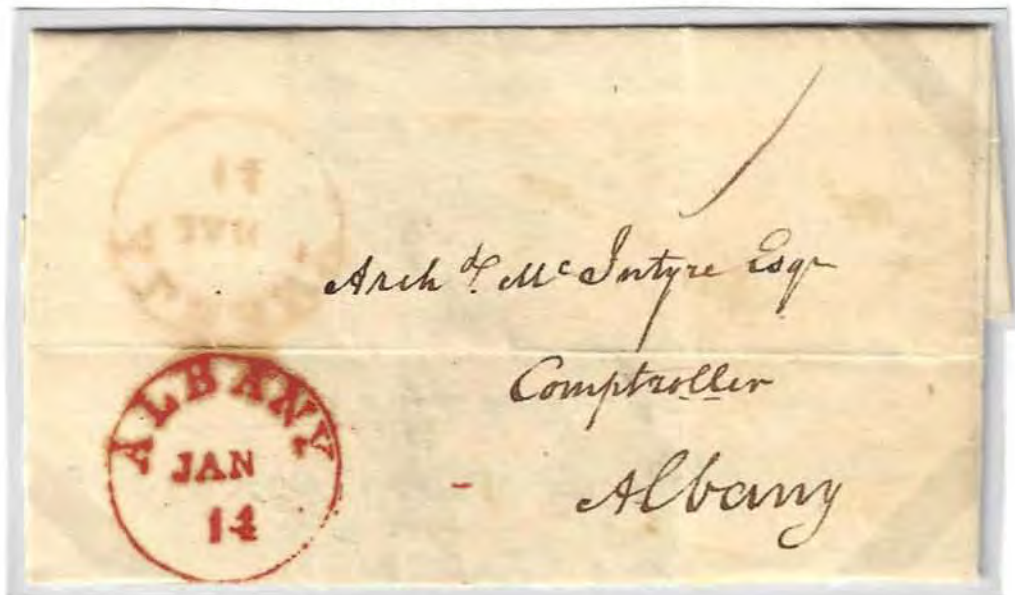 Arch.d Mc Intyre Esqr
Comptroller
Albany
ALBANY
JAN
14